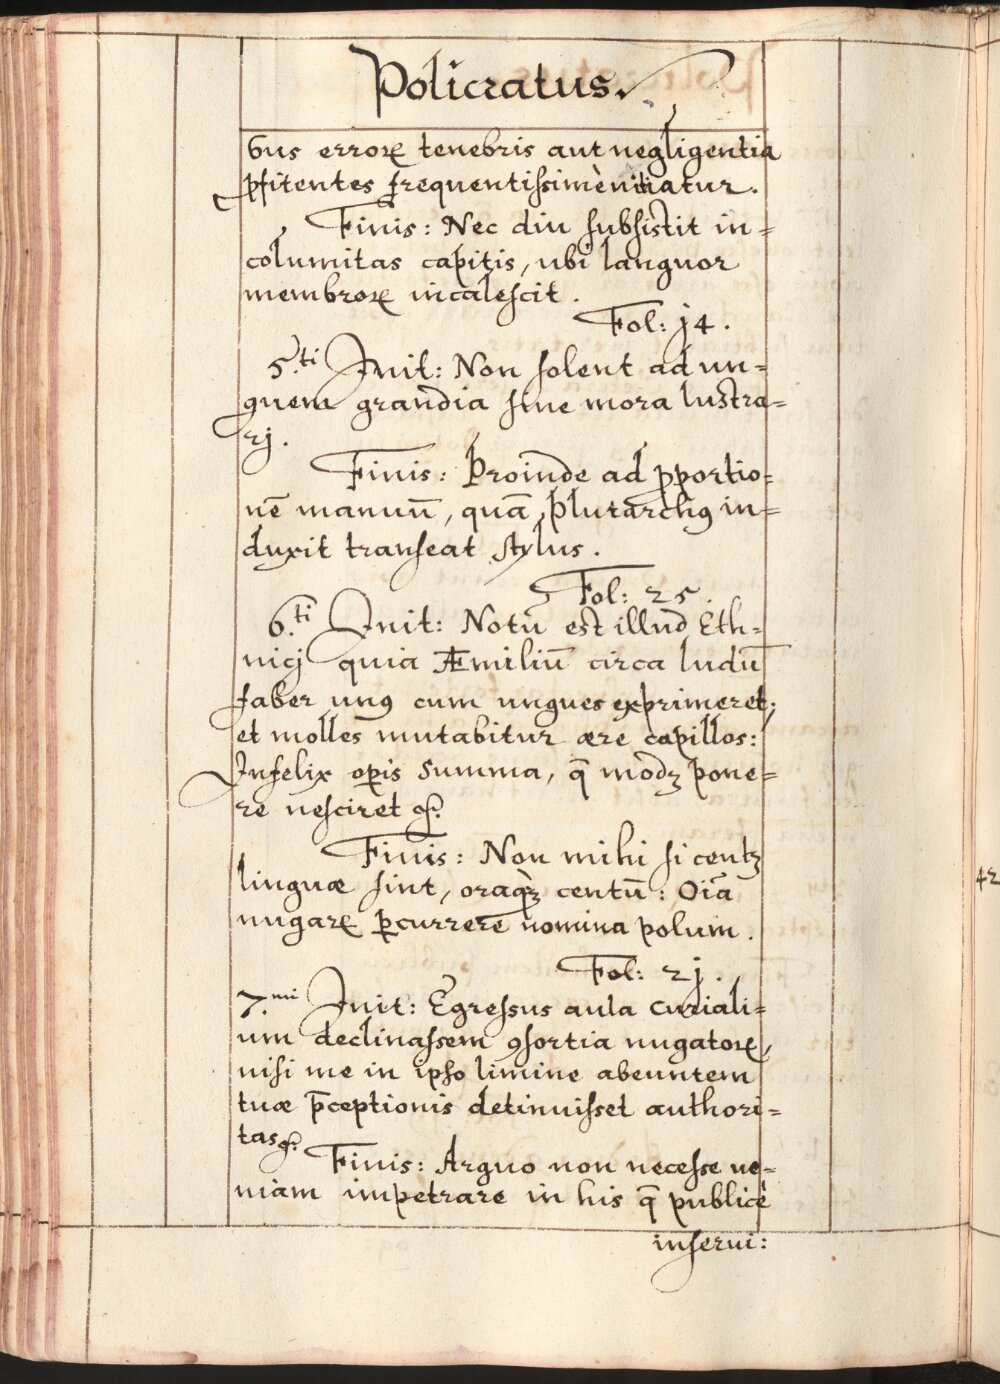 Policratus.
bus erroꝝ tenebris aut negligentia
ꝓfitentes frequentissimè nitiatur.
Finis: Nec diu subsistit in=
columitas capitis, ubi languor
membroꝝ incalescit.
Fol: j4.
5.ti Jnit: Non solent ad un=
guem grandia sine mora lustra=
rj.
Finis: Proinde ad ꝓportio=
nē manuū, quā Plutarchꝯ in=
duxit transeat stylus.
Fol: 25.
6.ti Jnit: Notū est illud Eth=
nicj quia Æmiliū circa ludū
faber unꝯ cum ungues exprimeret,
et molles mutabitur ære capillos:
Jnfelix oꝑis Summa, q̄ modꝫ pone=
re nesciret &.
Finis: Non mihi si centꝫ
linguæ sint, oraqꝫ centū: Oīa
nugaꝝ ꝑcurrere nomina polum.
Fol: 2j.
7.mi Jnit: Egressus aula curiali=
um declinassem ꝯsortia nugatoꝝ,
nisi me in ipso limine abeuntem
tuæ p̄ceptionis detinuisset authori=
tas &.
Finis: Arguo non necesse ve=
niam impetrare in his q̄ publicè
inserui:
42